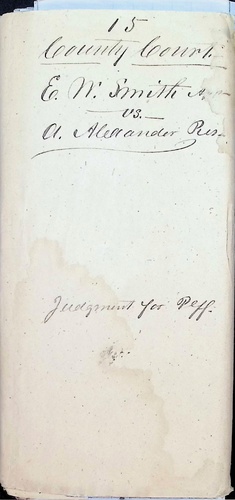 15
County Court.
E. W. Smith
vs.
A. Alexander Res.
Judgment for Peff.